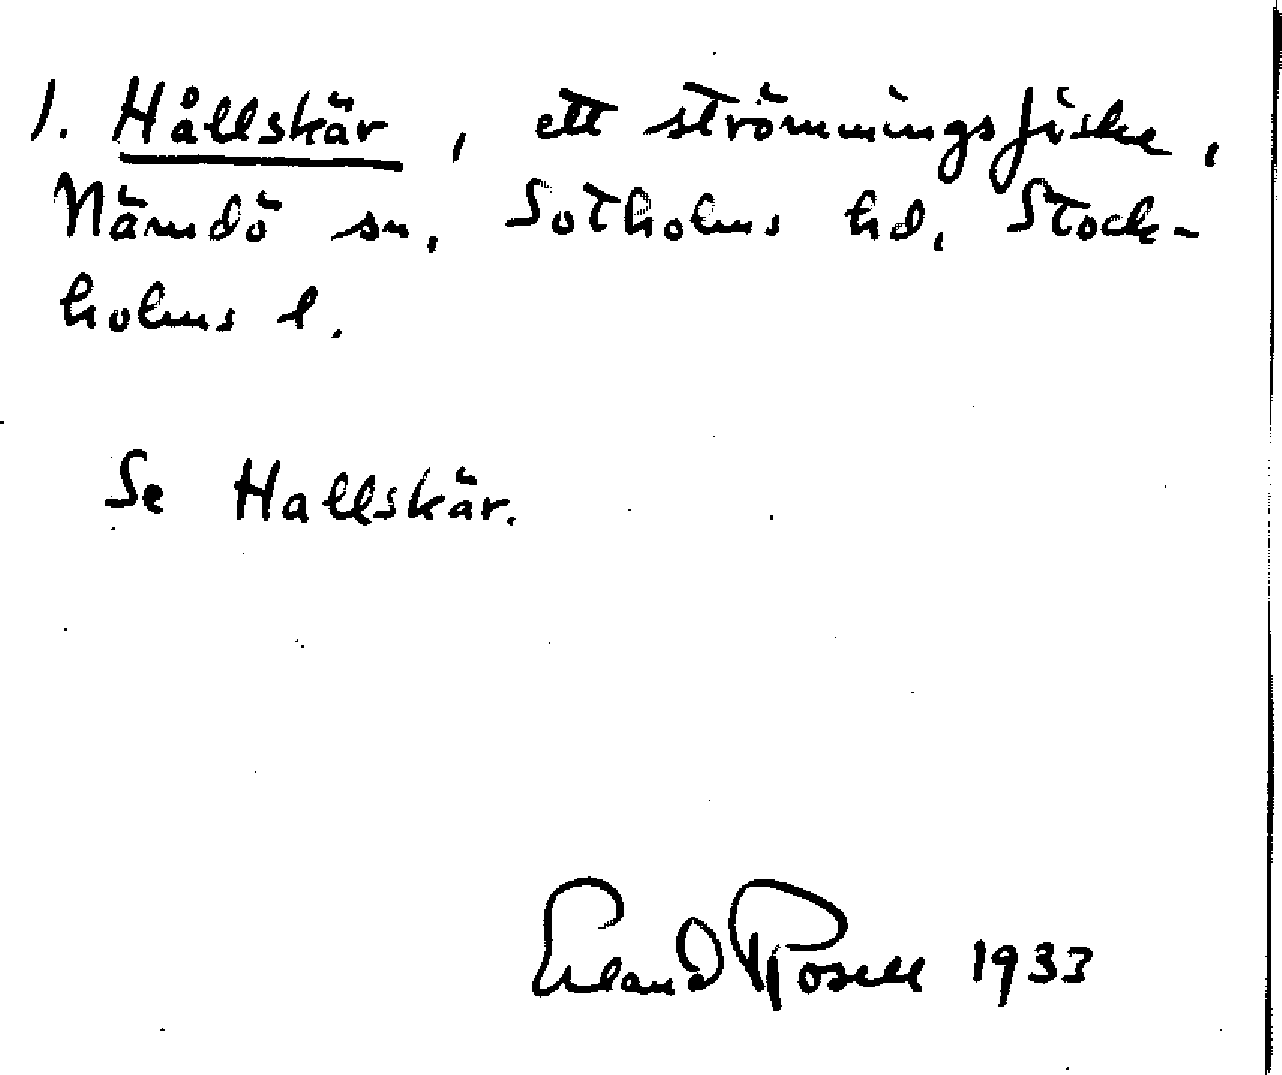 1. Hållskär, ett strömmingsfiske,
Nämdö sn, Sotholms hd, Stock-
holms l.
Se Hallskär.
Erland Rosell 1933